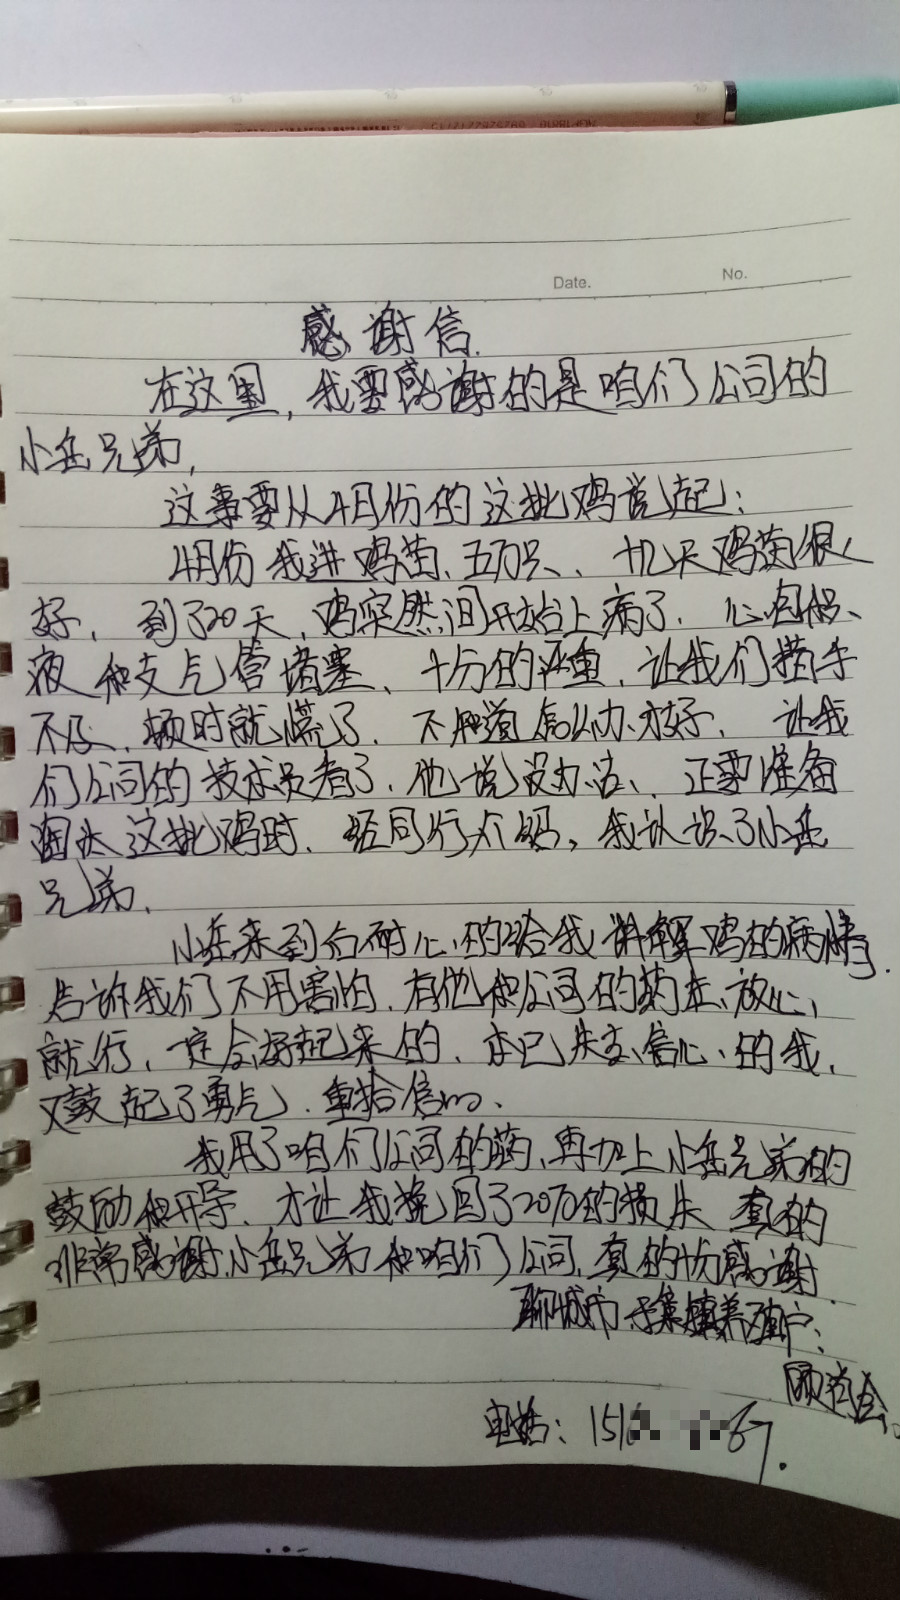 Date. No.
感谢信.
在这里,我要感谢的是咱们公司的
小岳兄弟,
这事要从4月份的这批鸡说起:
4月份我进鸡苗、五万只、十几天鸡苗很
好,到了20天,鸡突然间开始上病了.心包积
液和支气管堵塞、十分的严重,让我们措手
不及、顿时就慌了.不知道怎么办才好.让我
们公司的技术员看了.他说没办法、正要准备
淘汰这批鸡时、经同行介绍,我认识了小岳
兄弟、
小岳来到后耐心的给我讲解鸡的病情.
告诉我们不用害怕,有他和公司的药在,放心
就行,一定会好起来的,本已失去信心的我,
又鼓起了勇气.重拾信心、
我用了咱们公司的药、再加上小岳兄弟的
鼓励和开导、才让我挽回了20%的损失 真的
非常感谢小岳兄弟和咱们公司,真的十分感谢.
聊城市 镇养殖户:
顾 会
电话:151 67.